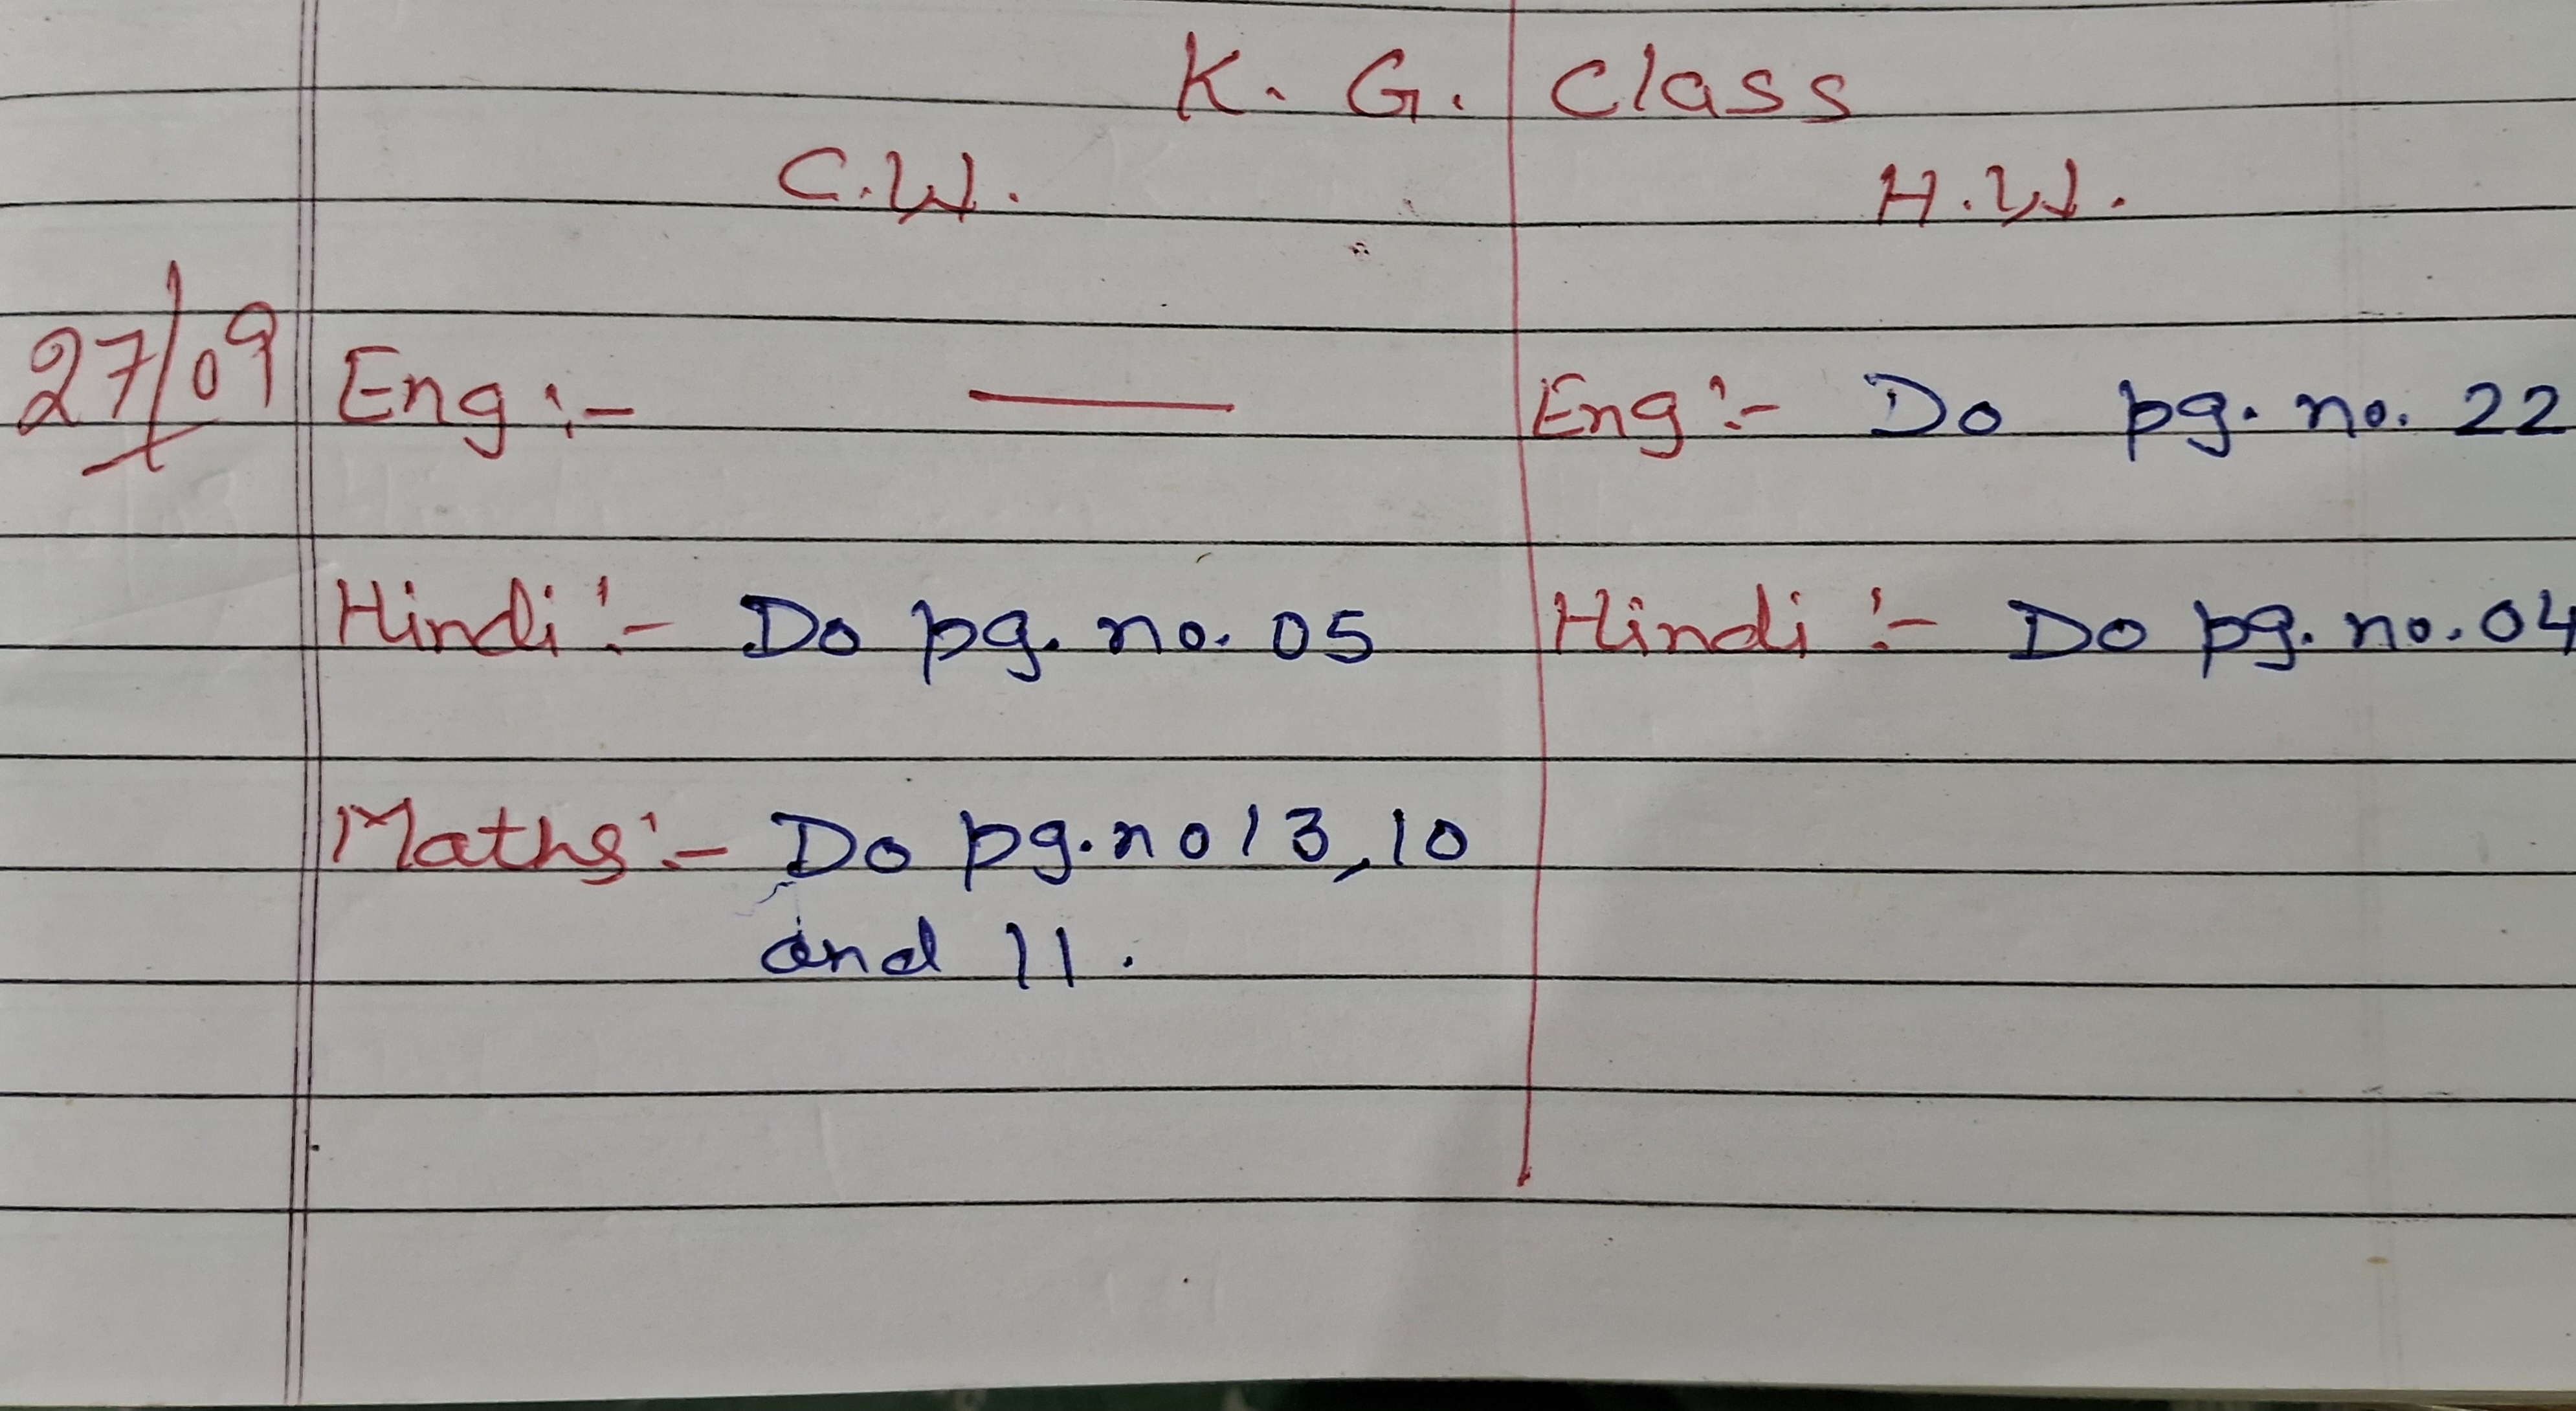 K. G. Class
C.W. H.W.
27/09 Eng :- — Eng :- Do pg. no. 22
Hindi :- Do pg. no. 05 Hindi :- Do pg. no. 04
Maths :- Do pg. no 13, 10
and 11.